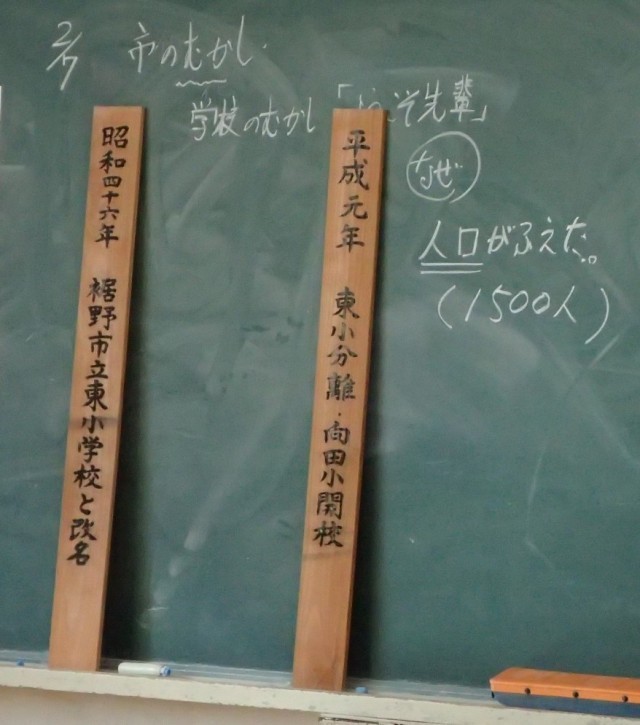 2/7 市のむかし
学校のむかし「ようこそ先輩」
昭和四十六年 裾野市立東小学校と改名
平成元年 東小分離・向田小開校
なぜ
人口がふえた。
(1500人)